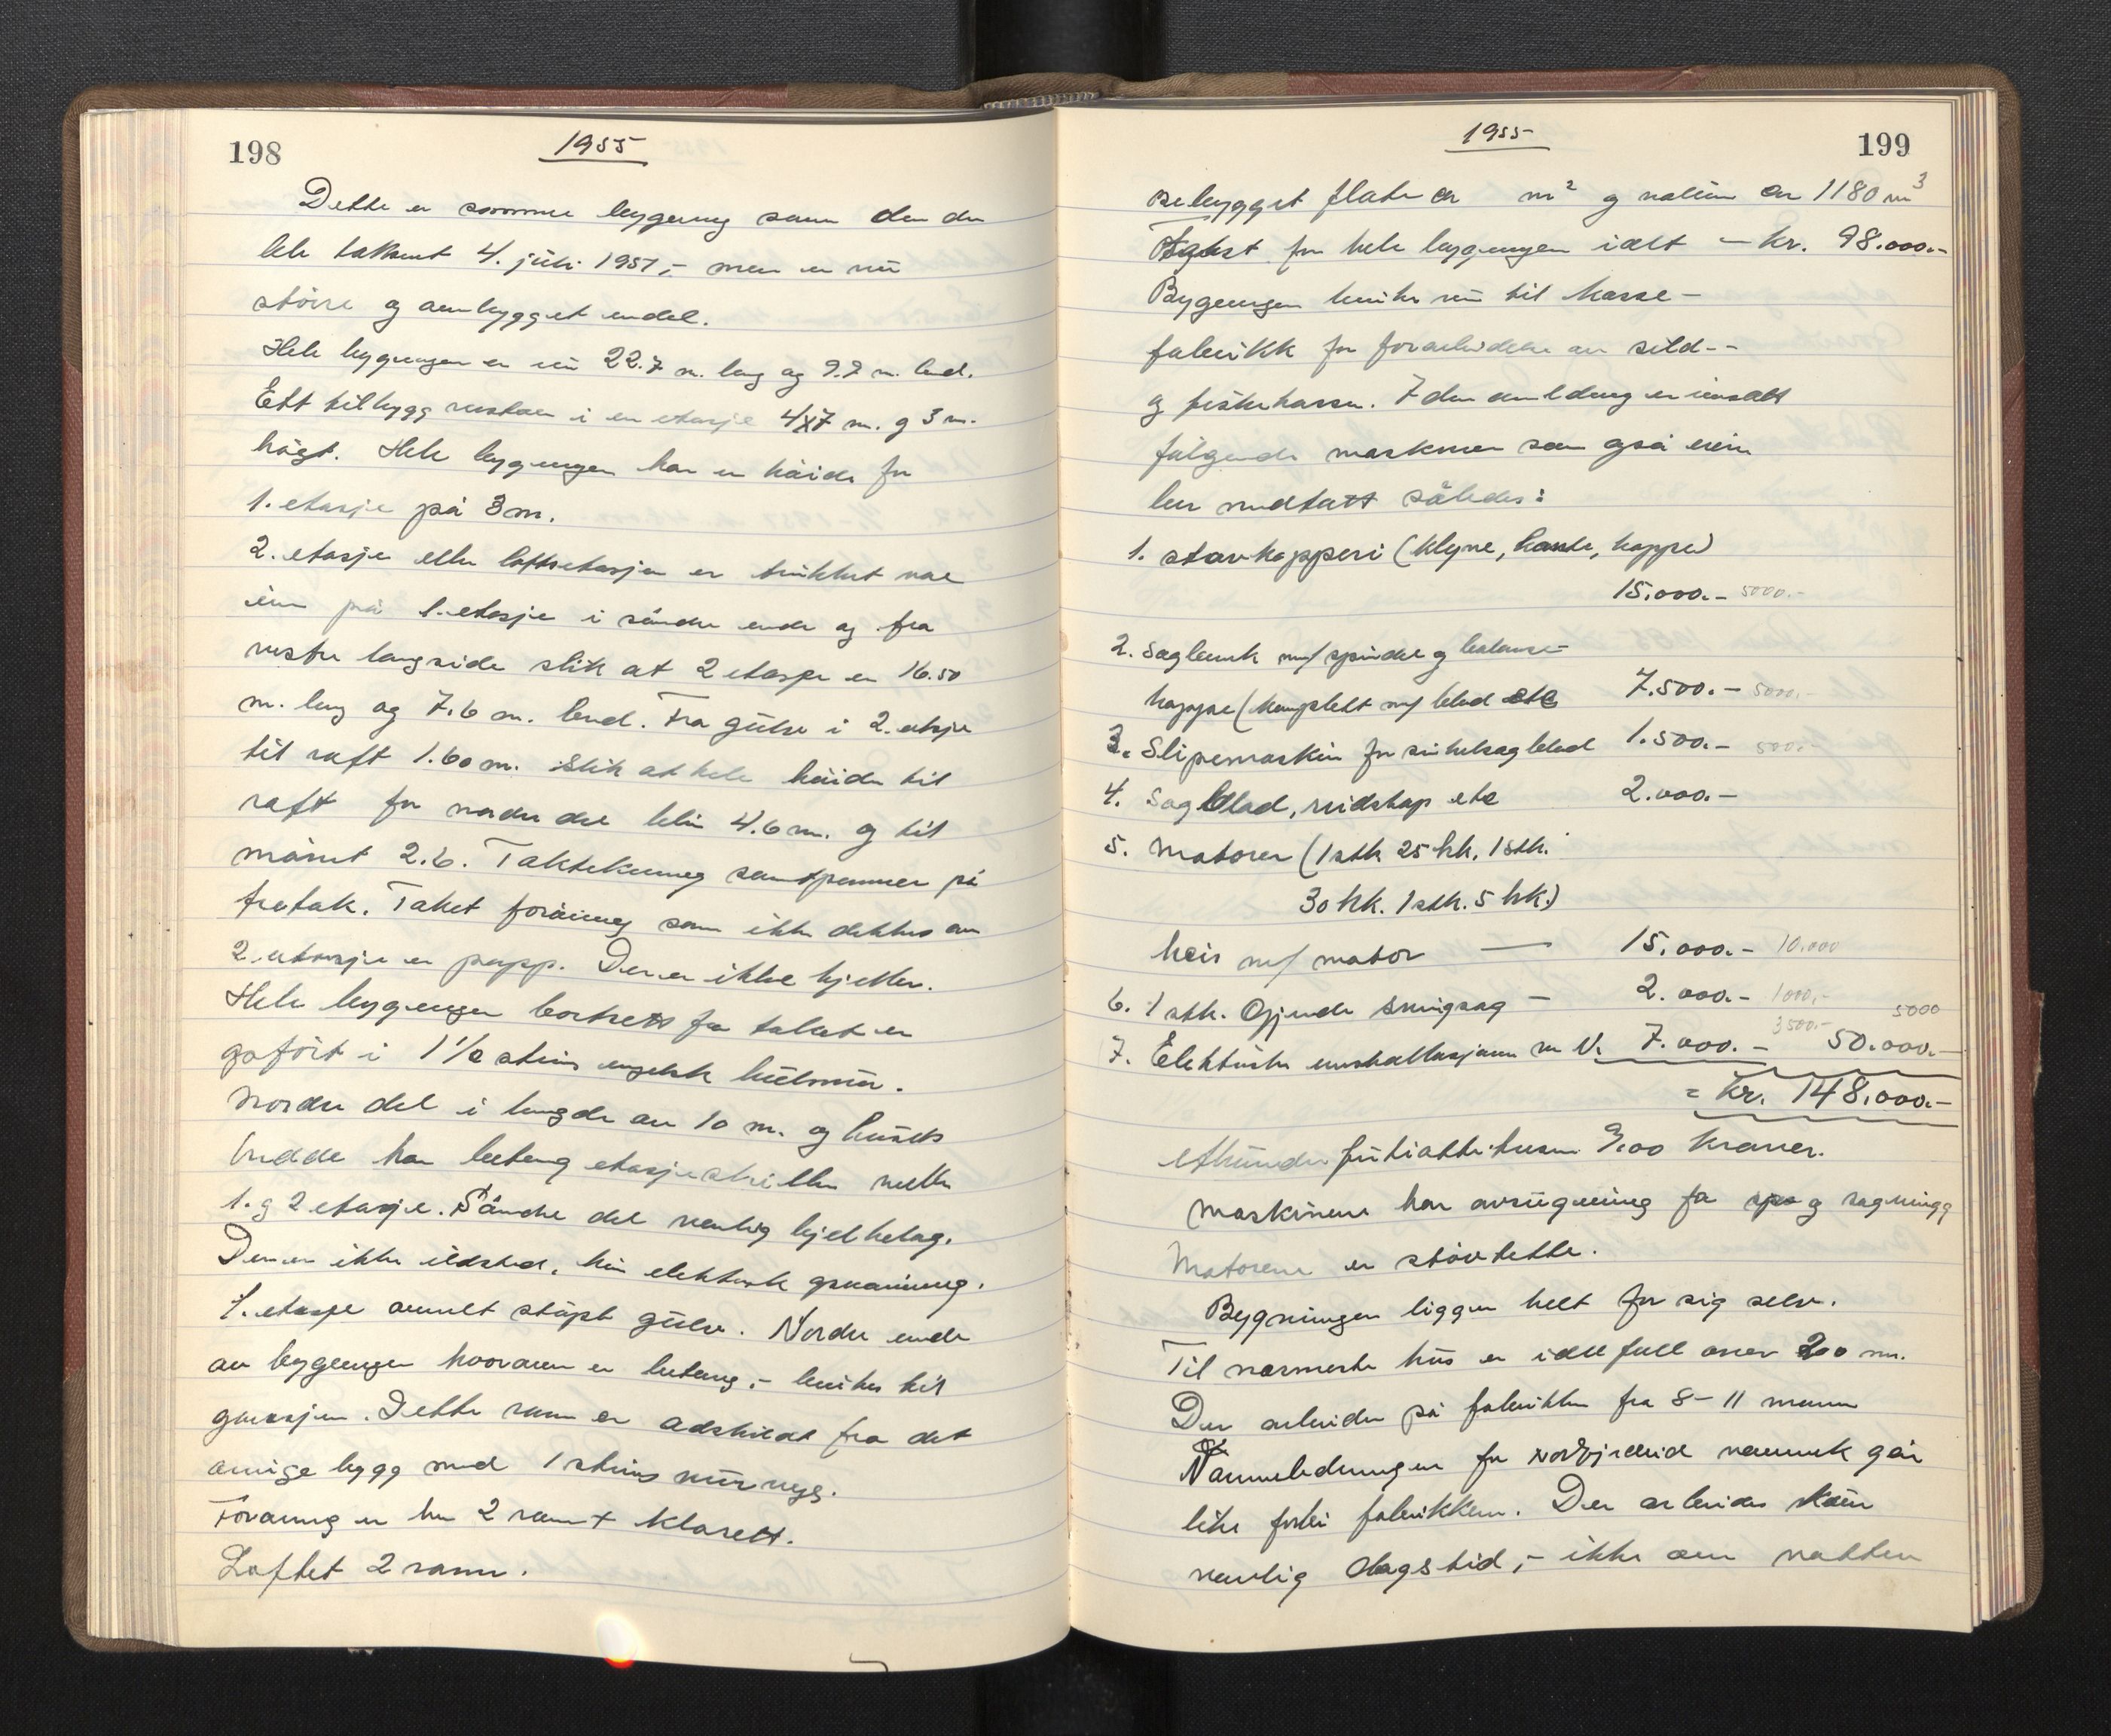 198
1955
Dette er samme bygning som den der
ble taksert 4. juli 1951,- men er nu
större og ombygget endel.
Hele bygningen er nu 22.7 m. lang og 9.7 m. bred.
Ett tilbygg vestover i en etasje 4x7 m. og 3 m.
högt. Hele bygningen har en höide for
1. etasje på 3 m.
2. etasje eller loftsetasjen er trukket noe
inn på 1. etasje i söndre ende og fra
vestre langside slik at 2 etasje er 16.50
m. lang og 7.6 m. bred. Fra gulv i 2. etasje
til raft 1.60 m. slik at hele höiden til
raft for nordre del blir 4.6 m. og til
mönet 2.6. Taktekning sementpanner på
tretak. Taket forövrig som ikke dekkes av
2. etasje er papp. Der er ikke kjeller.
Hele bygningen bortsett fra taket er
opfört i 1 1/2 stens engelsk hulmur.
Nordre del i lengde av 10 m. og husets
bredde har betong etasjeskiller mellem
1. og 2 etasje. Söndre del vanlig bjelkelag.
Der er ikke ildsted, kun elektrisk opvarming.
1. etasje armert stöpt gulv. Nordre ende
av bygningen hvorover er betong,- brukes til
garasjen. Dette rum er adskildt fra det
övrige bygg med 1 stens murvegg.
Forövrig er her 2 rom + klosett.
Loftet 2 rom.
1955
199
Bebygget flate er m² og volum er 1180 m³
Takst for hele bygningen ialt - kr. 98.000.-
Bygningen brukes nu til kasse-
fabrikk for forarbeidelse av sild--
og fiskekasser. I den anledning er innsatt
fölgende maskiner som også
ber medtatt således:
1. stavkapperi (klyve, kante, kappe)
15.000.- 5000.-
2. Sagbenk m/ spindel og balanse-
kappe (komplett m/ blad etc 7.500.- 5000.-
3. Slipemaskin for sirkelsagblad 1.500.- 500.-
4. Sagblad, redskap etc 2.000.-
5. Motorer (1 stk 25 hk, 1 stk.
30 hk. 1 stk. 5 hk.)
heis m/ motor — 15.000.- 10.000
6. 1 stk. svingsag - 2.000.- 1000,-
5000
7. Elektriske installasjoner m.v. 7.000.- 3500.- 50.000.-
= kr. 148.000.-
ethundreförtiåttetusen 0/00 kroner.
Maskinene har avsugning for spon og sagmugg
Motorene er stövtette.
Bygningen ligger helt for sig selv.
Til nærmeste hus er iallfall over 200 m.
Der arbeider på fabrikken fra 8-11 mann
Vannledningen for vannverk går
like forbi fabrikken. Der arbeides kun
vanlig dagstid,- ikke om natten